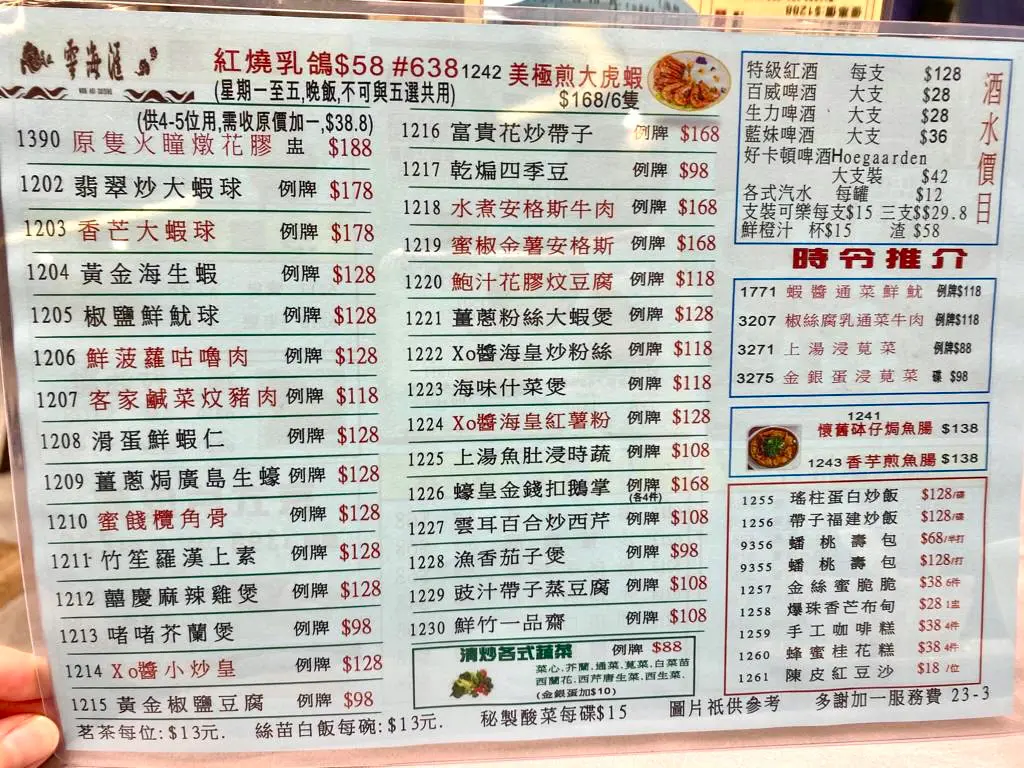 雲海滙
紅燒乳鴿$58 #638
(星期一至五,晚飯,不可與五選共用)
(供4-5位用,需收原價加一,$38.8)
1390 原隻火瞳燉花膠 盅 $188
1202 翡翠炒大蝦球 例牌 $178
1203 香芒大蝦球 例牌 $178
1204 黃金海生蝦 例牌 $128
1205 椒鹽鮮魷球 例牌 $128
1206 鮮菠蘿咕嚕肉 例牌 $128
1207 客家鹹菜炆豬肉 例牌 $118
1208 滑蛋鮮蝦仁 例牌 $128
1209 薑蔥焗廣島生蠔 例牌 $128
1210 蜜餞欖角骨 例牌 $128
1211 竹笙羅漢上素 例牌 $128
1212 囍慶麻辣雞煲 例牌 $128
1213 啫啫芥蘭煲 例牌 $98
1214 Xo醬小炒皇 例牌 $128
1215 黃金椒鹽豆腐 例牌 $98
1242 美極煎大虎蝦
$168/6隻
1216 富貴花炒帶子 例牌 $168
1217 乾煸四季豆 例牌 $98
1218 水煮安格斯牛肉 例牌 $168
1219 蜜椒金薯安格斯 例牌 $168
1220 鮑汁花膠炆豆腐 例牌 $118
1221 薑蔥粉絲大蝦煲 例牌 $128
1222 Xo醬海皇炒粉絲 例牌 $118
1223 海味什菜煲 例牌 $118
1224 Xo醬海皇紅薯粉 例牌 $128
1225 上湯魚肚浸時蔬 例牌 $108
1226 蠔皇金錢扣鵝掌 例牌 $168
(各4件)
1227 雲耳百合炒西芹 例牌 $108
1228 漁香茄子煲 例牌 $98
1229 豉汁帶子蒸豆腐 例牌 $108
1230 鮮竹一品齋 例牌 $108
清炒各式蔬菜 例牌 $88
菜心.芥蘭.通菜.莧菜.白菜苗
西蘭花.西芹唐生菜.西生菜.
(金銀蛋加$10)
酒水價目
特級紅酒 每支 $128
百威啤酒 大支 $28
生力啤酒 大支 $28
藍妹啤酒 大支 $36
好卡頓啤酒Hoegaarden
大支裝 $42
各式汽水 每罐 $12
支裝可樂每支$15 三支$$29.8
鮮橙汁 杯$15 渣 $58
時令推介
1771 蝦醬通菜鮮魷 例牌$118
3207 椒絲腐乳通菜牛肉 例牌$118
3271 上湯浸莧菜 例牌$88
3275 金銀蛋浸莧菜 碟 $98
1241
懷舊砵仔焗魚腸 $138
1243 香芋煎魚腸 $138
1255 瑤柱蛋白炒飯 $128/碟
1256 帶子福建炒飯 $128/碟
9356 蟠桃壽包 $68/半打
9355 蟠桃壽包 $128/打
1257 金絲蜜脆脆 $38 6件
1258 爆珠香芒布甸 $28 1盅
1259 手工咖啡糕 $38 4件
1260 蜂蜜桂花糕 $38 4件
1261 陳皮紅豆沙 $18 /位
茗茶每位:$13元. 絲苗白飯每碗:$13元. 秘製酸菜每碟$15 圖片祇供參考 多謝加一服務費 23-3